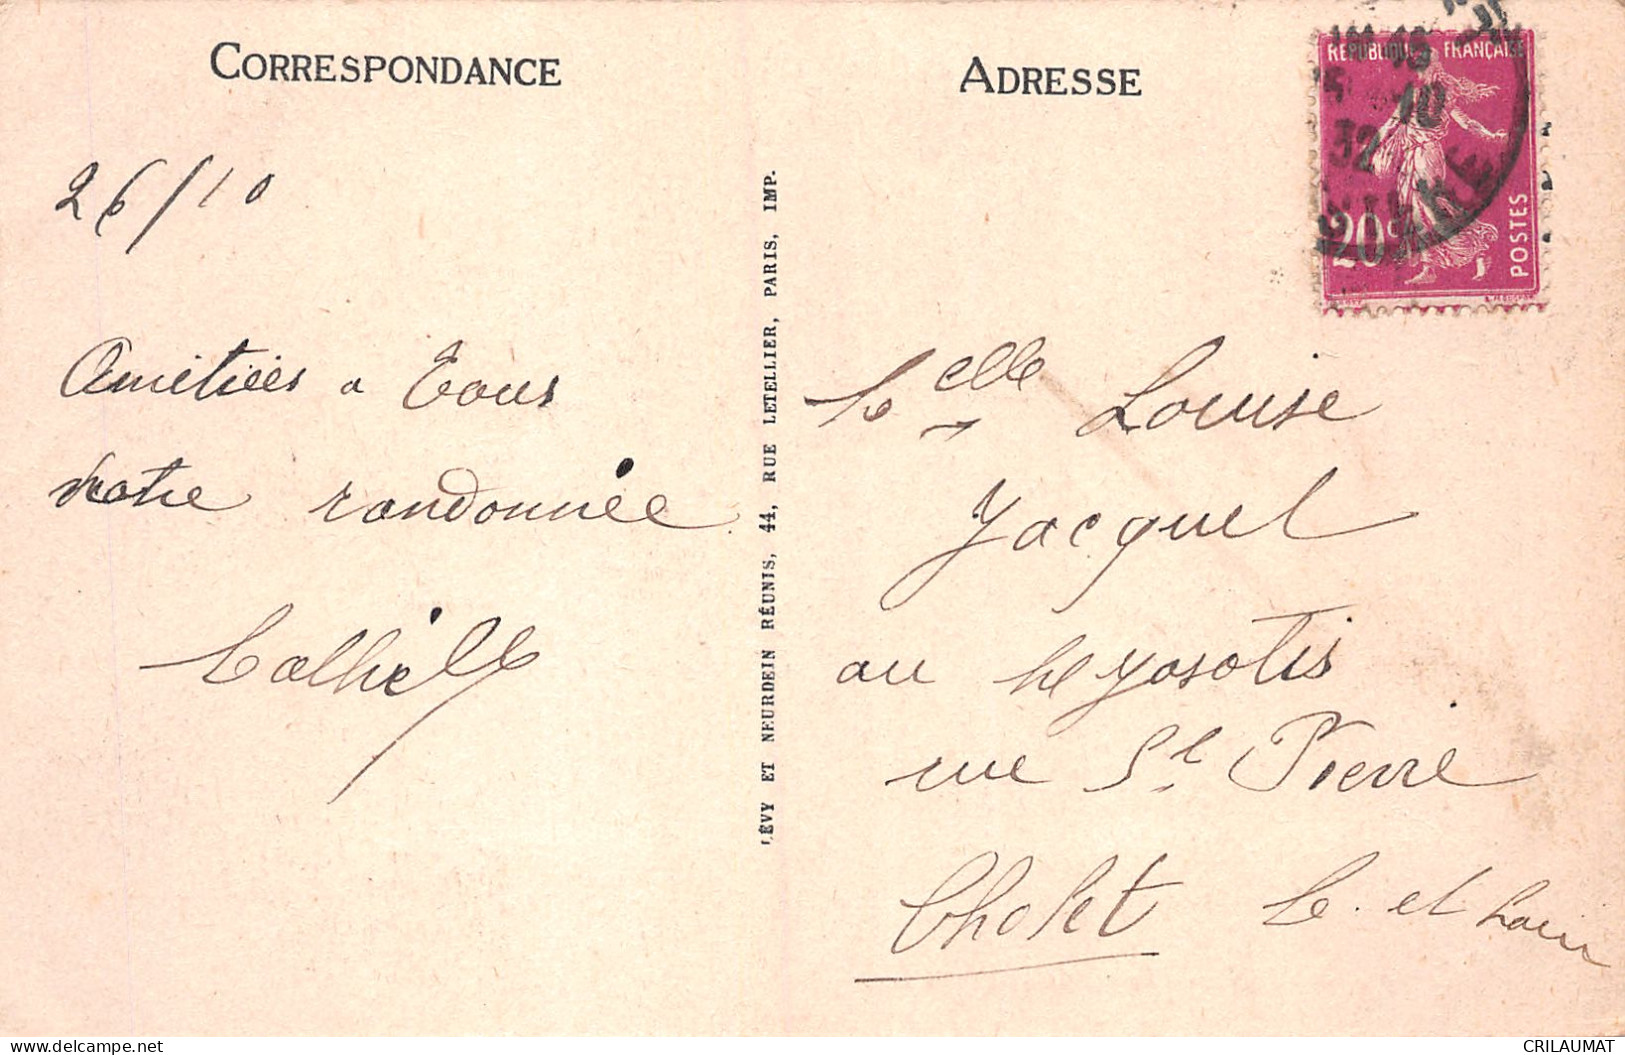 CORRESPONDANCE
26/10
Amitiées a Tous
Notre randonnée
ADRESSE
RÉPUBLIQUE FRANÇAISE
10
32
20c
POSTES
Melle Louise
Jacquel
au Myosotis
rue St Pierre
Cholet M. et Loire
LÉVY ET NEURDEIN RÉUNIS, 44, RUE LETELLIER, PARIS, IMP.
www.delcampe.net
CRILAUMAT